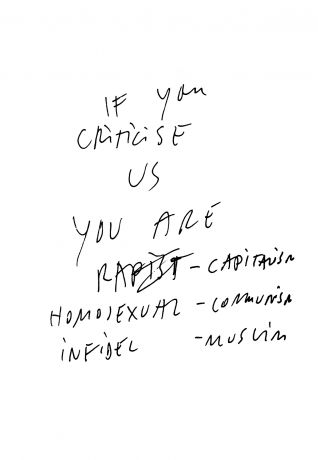 IF you
CRiTiCiSE
US
YOU ARE
RAPIST - CAPITALISM
HOMOSEXUAL - COMMUNISM
iNFiDEL - MUSLiM